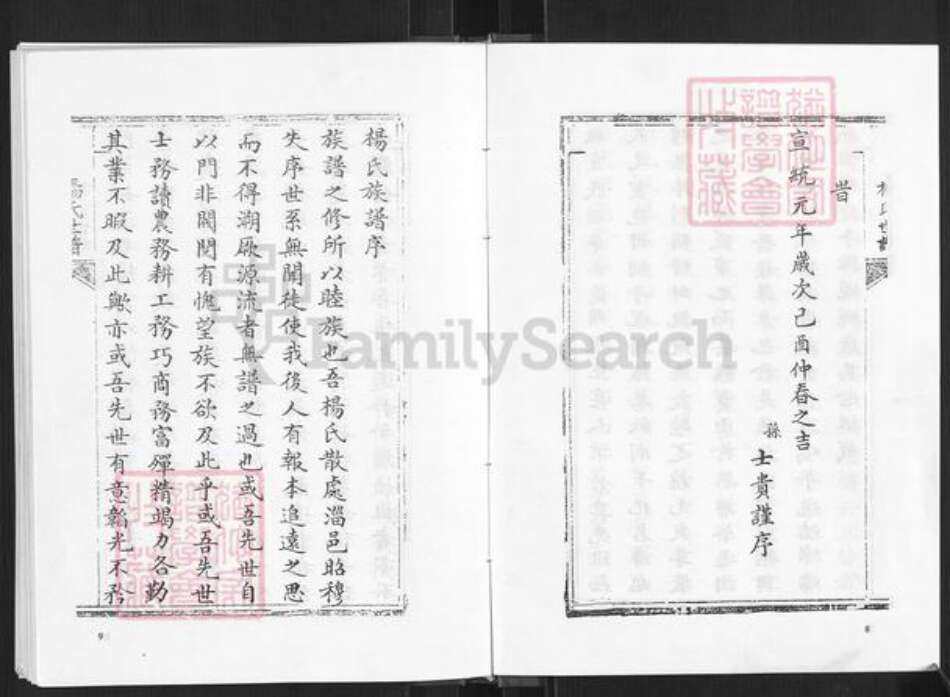 昔
宣統元年歲次己酉仲春之吉
孫 士貴謹序
8
楊氏族譜序
族譜之修所以睦族也吾楊氏散處淄邑昭穆
失序世系無聞徒使我後人有報本追遠之思
而不得溯厥源流者無譜之過也或吾先世自
以門非閥閱有愧望族不欲及此乎或吾先世
士務讀農務耕工務巧商務富殫精竭力各勤
其業不暇及此歟亦或吾先世有意韜光不矜
楊氏世譜
9
FamilySearch